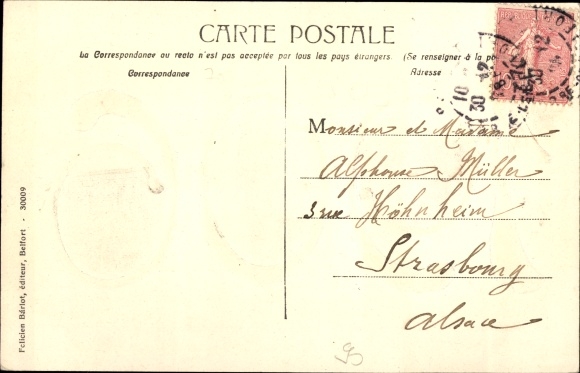 CARTE POSTALE
La Correspondance au recto n'est pas acceptée par tous les pays étrangers. (Se renseigner à la
Correspondance
Adresse
Monsieur et Madame
Alphonse Müller
3 rue Höhnheim
Strasbourg
Alsace
Felicien Bárlot, éditeur, Belfort - 30009